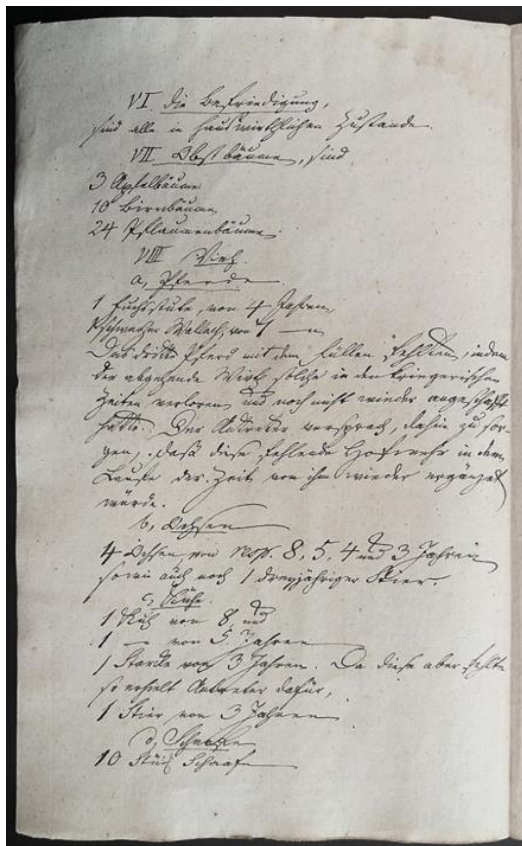 VI. Die Befriedigung,
sind alle in hauswirthlichen Zustande.
VII Obstbäume, sind
3 Apfelbäume
10 Birnbäume
24 Pflaumenbäume.
VIII Vieh.
a, Pferde
1 Fuchsstute, von 4 Jahren,
1 schwarzer Wallach, von 1 — n
Das dritte Pferd mit dem Füllen fehlten, indem
der abgehende Wirth solche in den kriegerischen
Zeiten verloren und noch nicht wieder angeschafft
hatte. Der Antreter versprach, dahin zu sor-
gen, daß diese fehlende Hofwehr in dem
Laufe der Zeit von ihm wieder ergänzet
würde.
b, Ochsen
4 Ochsen von resp. 8, 5, 4 und 3 Jahren
sowie auch noch 1 dreyjähriger Stier.
c, Kühe.
1 Kuh von 8, und
1 — von 5 Jahren
1 Starke von 3 Jahren. Da diese aber fehlte
so erhielt Antreter dafür,
1 Stier von 3 Jahren
d, Schaafe
10 Stück Schaafe